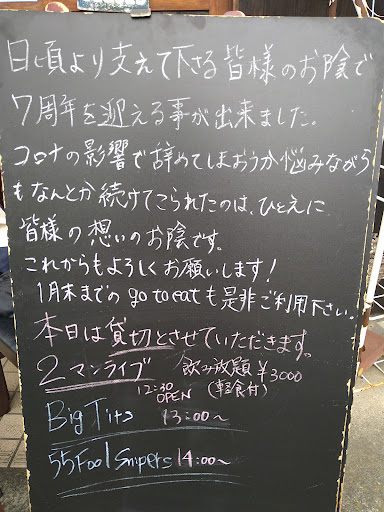 日頃より支えて下さる皆様のお陰で
7周年を迎える事が出来ました。
コロナの影響で辞めてしまおうか悩みながら
もなんとか続けてこられたのは、ひとえに
皆様の想いのお陰です。
これからもよろしくお願いします!
1月末までの go to eat も是非ご利用下さい。
本日は貸切とさせていただきます。
2マンライブ 飲み放題 ¥3000
(軽食付)
12:30
OPEN
Big Tits 13:00〜
55 Fool Snipers 14:00〜